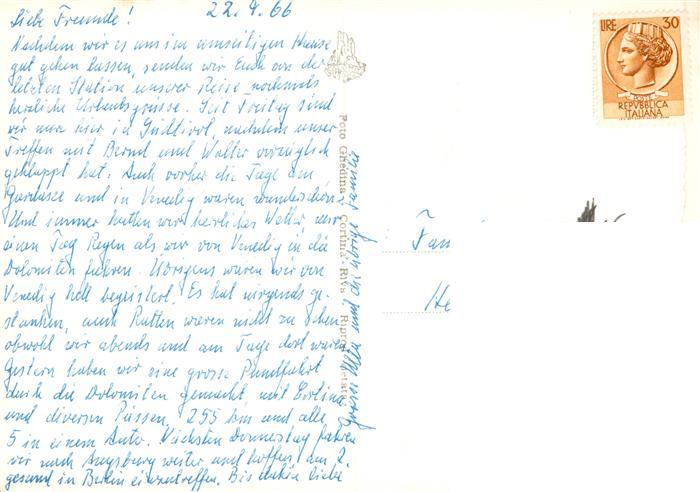 22.9.66
Liebe Freunde!
Nachdem wir es uns im umseitigen Hause
gut gehen lassen, senden wir Euch von der
letzten Station unserer Reise nochmals
herzliche Urlaubsgrüsse. Seit Freitag sind
wir nun hier in Südtirol, nachdem unser
Treffen mit Bernd und Walter vorzüglich
geklappt hat. Auch vorher die Tage am
Gardasee und in Venedig waren wunderschön.
Und immer hatten wir herrliches Wetter, nur
einen Tag Regen als wir von Venedig in die
Dolomiten fuhren. Übrigens waren wir von
Venedig hell begeistert. Es hat nirgends ge-
stunken, auch Ratten waren nicht zu sehen
obwohl wir abends und am Tage dort waren.
Gestern haben wir eine grosse Rundfahrt
durch die Dolomiten gemacht, mit Cortina
und diversen Pässen, 255 km und alle
5 in einem Auto. Nächsten Donnerstag fahren
wir nach Augsburg weiter und hoffen am 2.
gesund in Berlin einzutreffen. Bis dahin liebe
Foto Ghedina - Cortina - Riva Riprod. Vietata
LIRE 30
POSTE
REPVBBLICA
ITALIANA
Fam
He